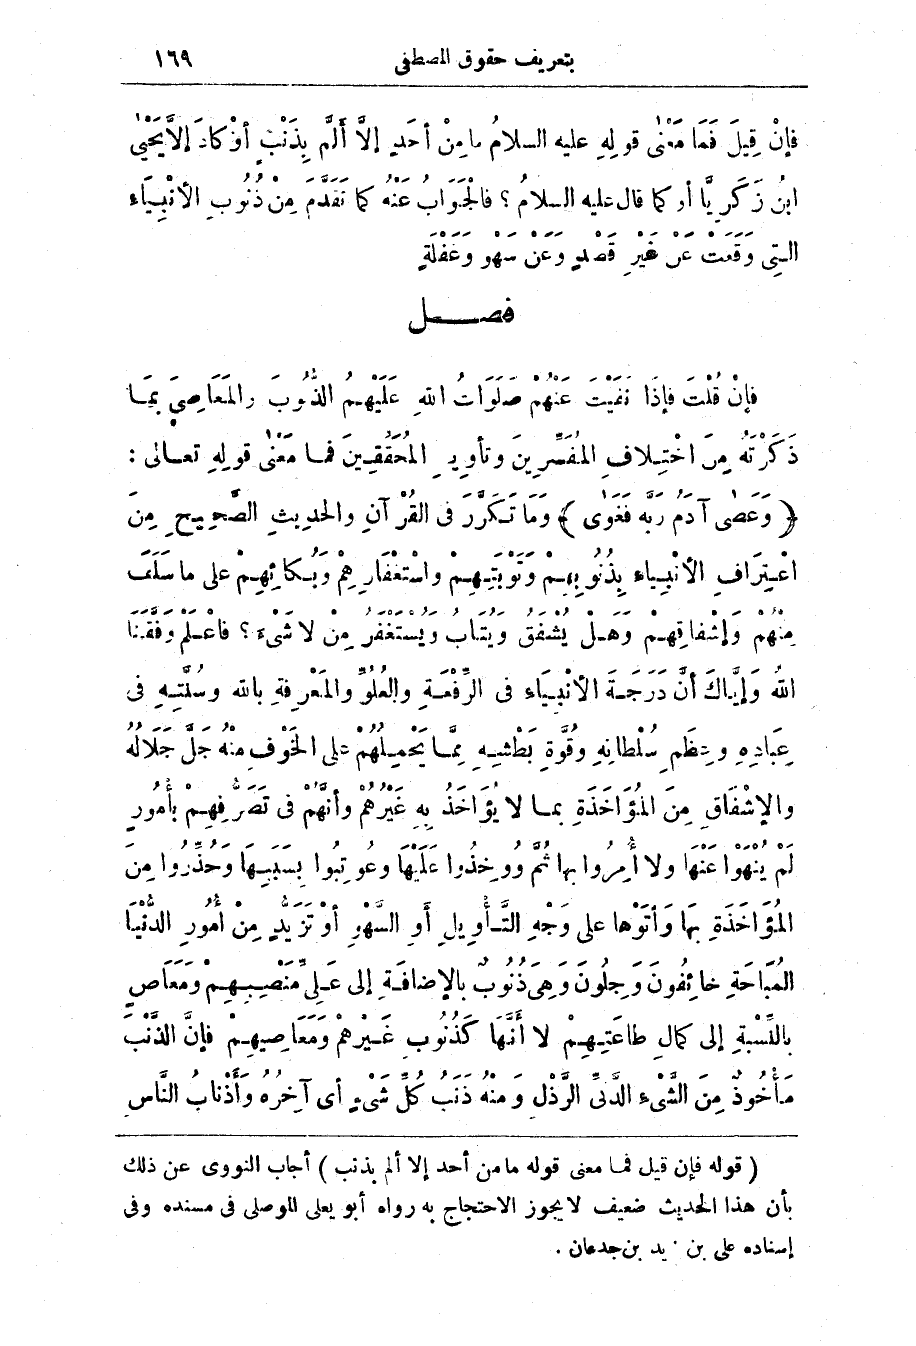 بتعريف حقوق المصطفى ١٦٩
فَإِنْ قِيلَ فَمَا مَعْنٰى قولِهِ عليه السلامُ مامِنْ أحَدٍ إلَّا أَلَمَّ بِذَنْبٍ أوْ كادَ إلاَّ يَحْيٰى
ابنُ زَكَرِيَّا أو كما قال عليه السلامُ ؟ فالْجَوَابُ عَنْهُ كما تَقَدَّمَ مِنْ ذُنُوبِ الأنْبِيَاءِ
التِى وَقَعَتْ عَنْ غَيْرِ قَصْدٍ وعَنْ سَهْوٍ وغَفْلَةٍ
فصــــل
فإنْ قُلْتَ فإذَا نَفَيْتَ عَنْهُمْ صَلَوَاتُ اللهِ عَلَيْهِمُ الذُّنُوبَ والمَعَاصِىَ بِمَا
ذَكَرْتَهُ مِنَ اخْتِلافِ المُفَسِّرِينَ وتأوِيلِ المُحَقِّقِينَ فمَا مَعْنٰى قولِهِ تعالى :
﴿ وَعَصٰى آدَمُ رَبَّهُ فَغَوٰى ﴾ وَمَا تَكَرَّرَ فى القُرْآنِ والحديثِ الصَّحِيحِ مِنَ
اعْتِرَافِ الأنْبِيَاءِ بِذُنُوبِهِمْ وَتَوْبَتِهِمْ واسْتِغْفَارِهِمْ وَبُكائِهِمْ على ماسَلَفَ
مِنْهُمْ وَإشْفاقِهِمْ وَهَلْ يُشْفَقُ وَيُتَابُ ويُسْتَغْفَرُ مِنْ لاشَىْءَ ؟ فاعْلَمْ وَفَّقَنَا
اللهُ وَإِيَّاكَ أنَّ دَرَجَةَ الأنْبِيَاءِ فى الرِّفْعَةِ والعُلُوِّ والمَعْرِفَةِ بالله وسُنَّتِهِ فى
عِبَادِهِ وعِظَمِ سُلْطانِهِ وقُوَّةِ بَطْشِهِ مِمَّا يَحْمِلُهُمْ على الخَوْفِ منهُ جَلَّ جَلَالُهُ
والإشْفَاقِ مِنَ المُؤَاخَذَةِ بما لا يُؤَاخَذُ بِهِ غَيْرُهُمْ وأنَّهُمْ فى تَصَرُّفِهِمْ بأُمُورٍ
لَمْ يُنْهَوْا عَنْهَا ولا أُمِرُوا بها ثُمَّ وُوخِذُوا عَلَيْهَا وعُوتِبُوا بِسَبَبِهَا وَحُذِّرُوا مِنَ
المُؤَاخَذَةِ بِهَا وَأتَوْها على وَجْهِ التَّأْوِيلِ أَوِ السَّهْوِ أوْ تَزَيُّدٍ مِنْ أُمُورِ الدُّنْيَا
المُبَاحَةِ خائِفُونَ وَجِلُونَ وَهِىَ ذُنُوبٌ بالإضافَةِ إلى عَلِىِّ مَنْصِبِهِمْ ومَعَاصٍ
بالنِّسْبَةِ إلى كمالِ طاعَتِهِمْ لا أَنَّهَا كَذُنُوبِ غَيْرِهِمْ ومَعَاصِيهِمْ فإنَّ الذَّنْبَ
مَأْخُوذٌ مِنَ الشَّىْءِ الدَّنِىِّ الرَّذْلِ ومنْهُ ذَنَبُ كُلِّ شَىْءٍ أى آخِرُهُ وَأَذْنابُ النَّاسِ
( قوله فإن قيل فما معنى قوله مامن أحد إلا ألم بذنب ) أجاب النووى عن ذلك
بأن هذا الحديث ضعيف لايجوز الاحتجاج به رواه أبو يعلى الموصلى فى مسنده وفى
إسناده على بن زيد بن جدعان .